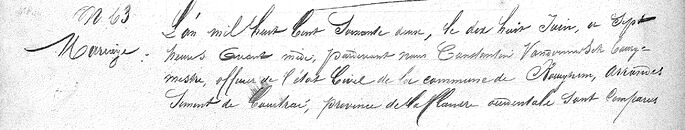 N 63
L'an mil huit cent soixante deux, le dix huit Juin, a Sept
Mariage. heures avant midi, pardevant nous Constantin Bourg-
mestre, officier de l'état Civil de la commune de arrondis
sement de Courtrai, province de la Flandre occidentale sont comparus